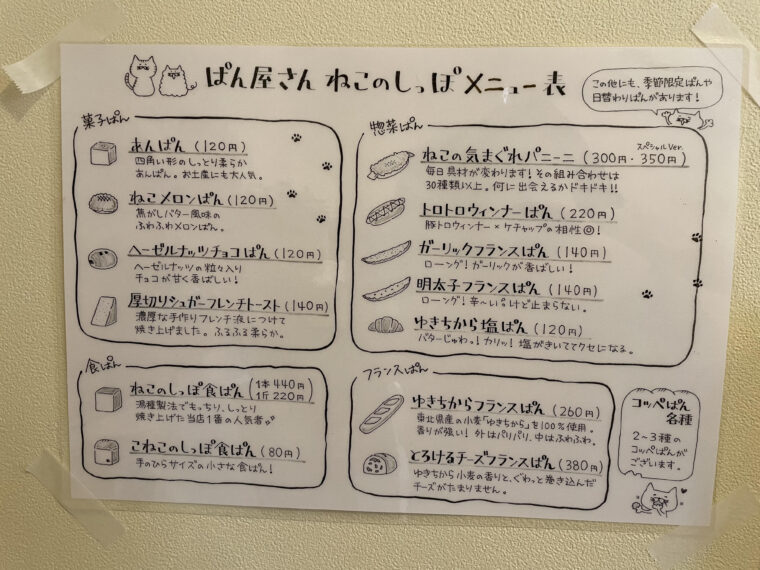 ぱん屋さん ねこのしっぽ メニュー表
この他にも、季節限定ぱんや
日替わりぱんがあります!
菓子ぱん
あんぱん (120円)
四角い形のしっとり柔らか
あんぱん。お土産にも大人気。
ねこメロンぱん (120円)
焦がしバター風味の
ふわふわメロンぱん。
ヘーゼルナッツチョコぱん (120円)
ヘーゼルナッツの粒々入り
チョコが甘く香ばしい!
厚切りシュガーフレンチトースト (140円)
濃厚な手作りフレンチ液につけて
焼き上げました。ふるふる柔らか。
惣菜ぱん
スペシャルVer.
ねこの気まぐれパニーニ (300円・350円)
毎日具材が変わります!その組み合わせは
30種類以上。何に出会えるかドキドキ!!
トロトロウィンナーぱん (220円)
豚トロウィンナー×ケチャップの相性◎!
ガーリックフランスぱん (140円)
ローング!ガーリックが香ばしい!
明太子フランスぱん (140円)
ローング!辛〜いけど止まらない。
ゆきちから塩ぱん (120円)
バターじゅわっ!カリッ!塩がきいててクセになる。
食ぱん
ねこのしっぽ食ぱん (1本440円 1斤220円)
湯種製法でもっちり、しっとり
焼き上げた当店1番の人気者
こねこのしっぽ食ぱん (80円)
手のひらサイズの小さな食ぱん!
フランスぱん
ゆきちからフランスぱん (260円)
東北県産の小麦「ゆきちから」を100%使用。
香りが強い!外はパリパリ、中はふわふわ。
とろけるチーズフランスぱん (380円)
ゆきちから小麦の香りと、ぐわっと巻き込んだ
チーズがたまりません。
コッペぱん
各種
2〜3種の
コッペぱんが
ございます。